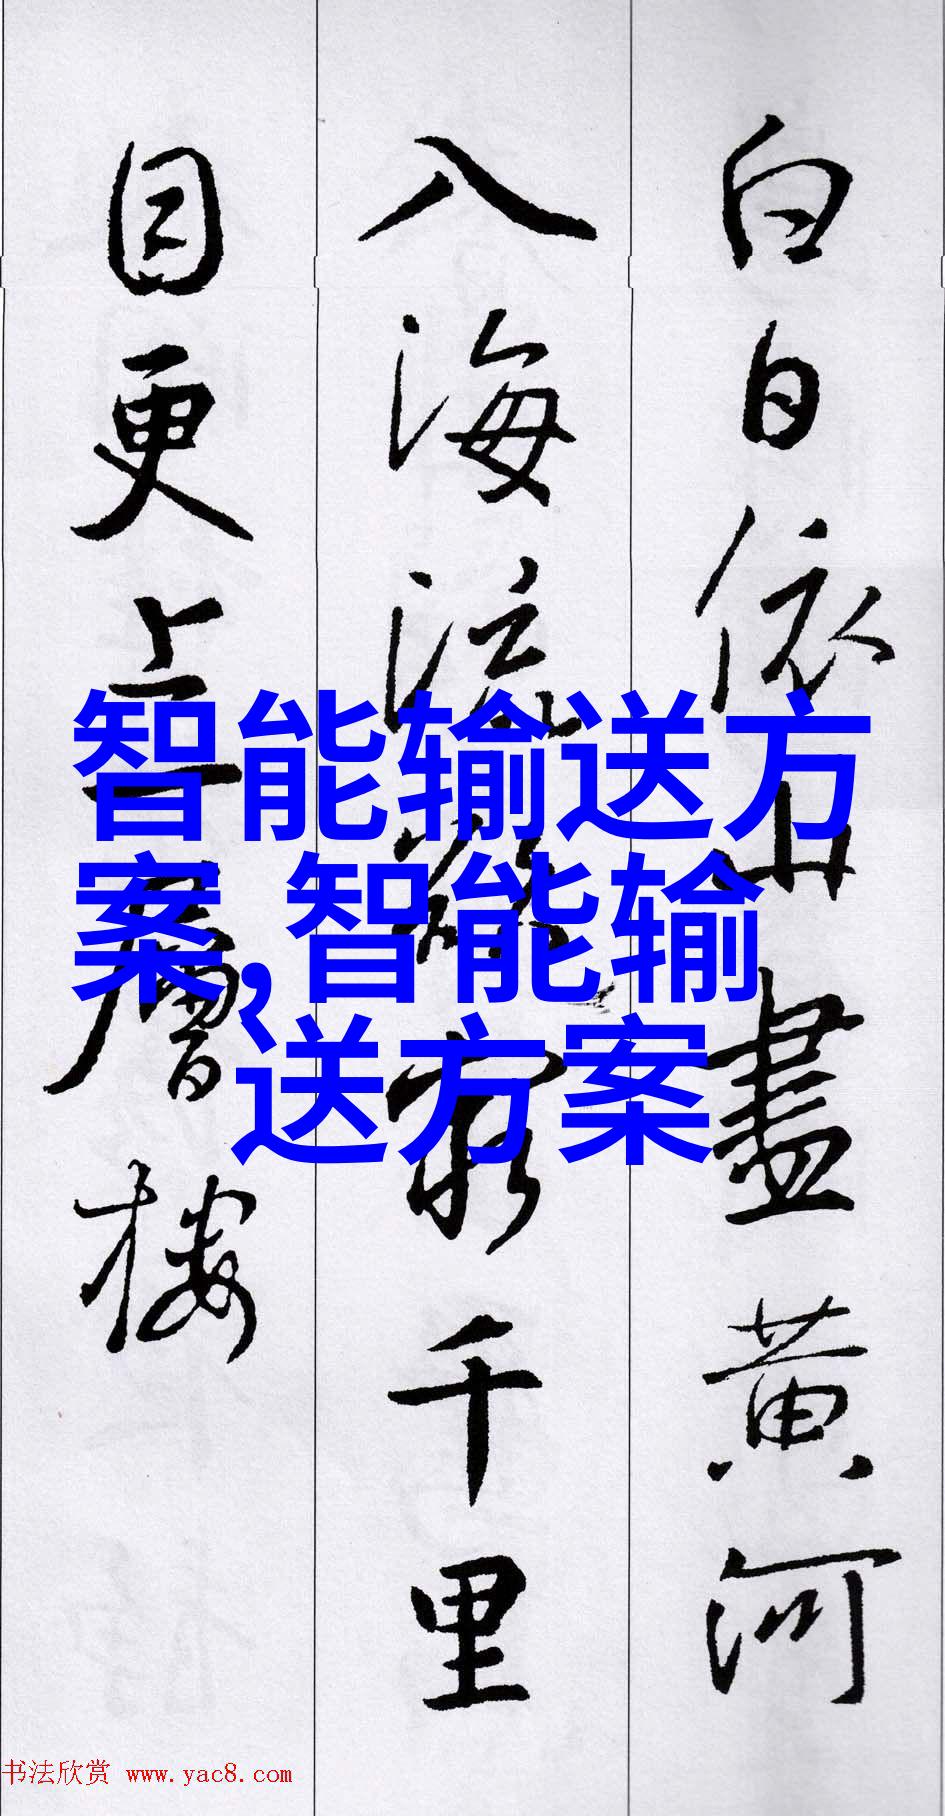 白日依山盡黄河
入海流欲窮千里
目更上一層樓
智能输送方
案,智能输
送方案
书法欣赏 www.yac8.com